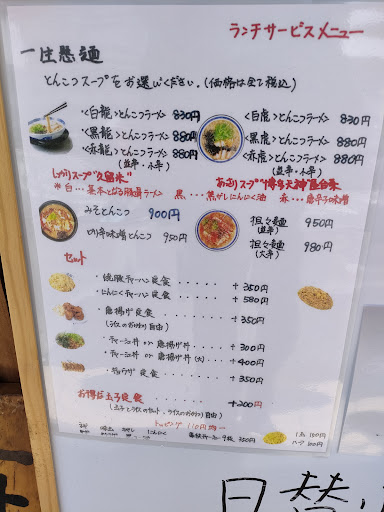 ランチサービスメニュー
一生懸麺
とんこつスープをお選びください。(価格は全て税込)
<白龍>とんこつラーメン 830円
<黒龍>とんこつラーメン 880円
<赤龍>とんこつラーメン 880円
(並辛・小辛)
<白虎>とんこつラーメン 830円
<黒虎>とんこつラーメン 880円
<赤虎>とんこつラーメン 880円
(並辛・小辛)
しっかりスープ"久留米"
あっさりスープ"博多天神"屋台味
※白…基本となる豚骨ラーメン 黒…焦がしにんにく油 赤…唐辛子味噌
みそとんこつ 900円
切り辛味噌とんこつ 950円
担々麺 950円
(並辛)
担々麺 980円
(大辛)
セット
・焼豚チャーハン定食 +350円
・にんにくチャーハン定食 +580円
・唐揚げ定食 +350円
(ライスのおかわり自由)
・チャーシュー丼 or 唐揚げ丼 +300円
・チャーシュー丼 or 唐揚げ丼(大) +400円
・ギョウザ定食 +350円
お得な玉子定食 +200円
(玉子とライスのセット、ライスのおかわり自由)
トッピング 110円均一
にんにく
350円
1玉 150円
ハーフ 100円
日替